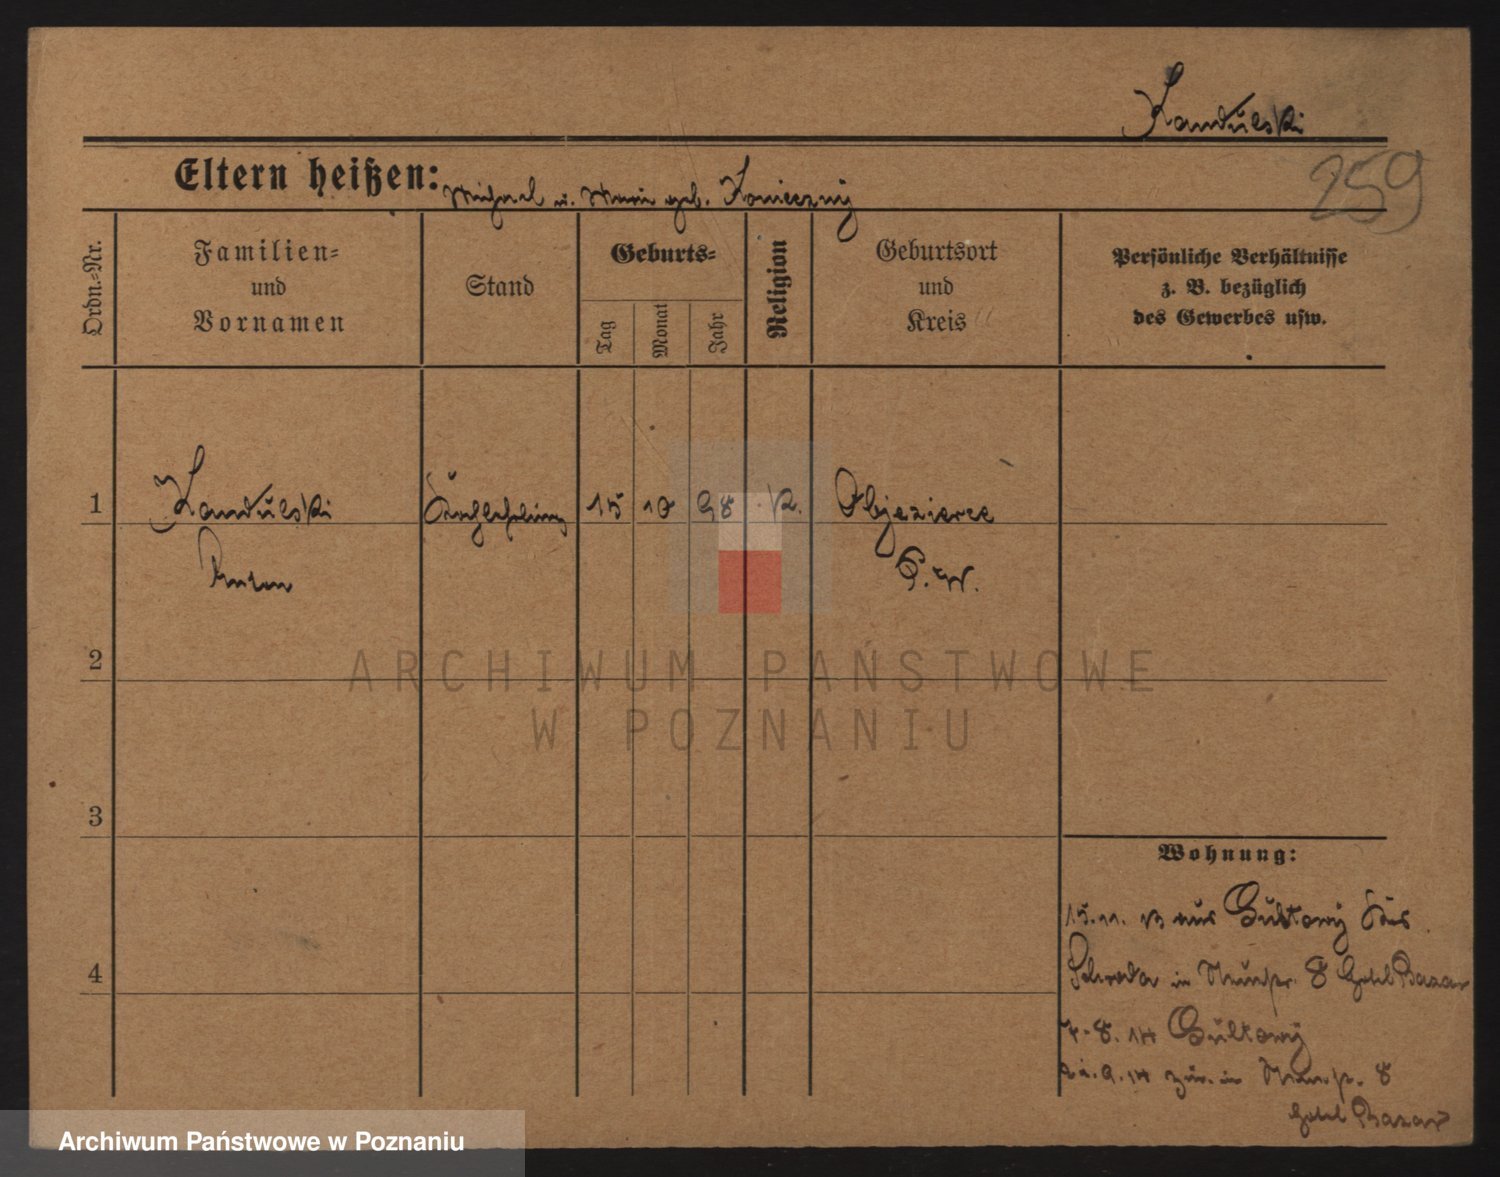 Kandulski
259
Eltern heißen: Michael u. Marie geb. Konieczny
Ordn.-Nr.
Familien-
und
Vornamen
Stand
Geburts-
Tag
Monat
Jahr
Religion
Geburtsort
und
Kreis
Persönliche Verhältnisse
z. B. bezüglich
des Gewerbes usw.
1
Kandulski
Kochlehrling
15
10
98
K.
Objezierce
Anton
O. W.
2
ARCHIWUM PAŃSTWOWE
W POZNANIU
3
Wohnung:
15.11. 13 aus Gultowy Krs
4
Schroda in Neuestr. 8 Hotel Bazar
7.8.14 Gultowy
9.14 zur. in Neuestr. 8
Hotel Bazar
Archiwum Państwowe w Poznaniu